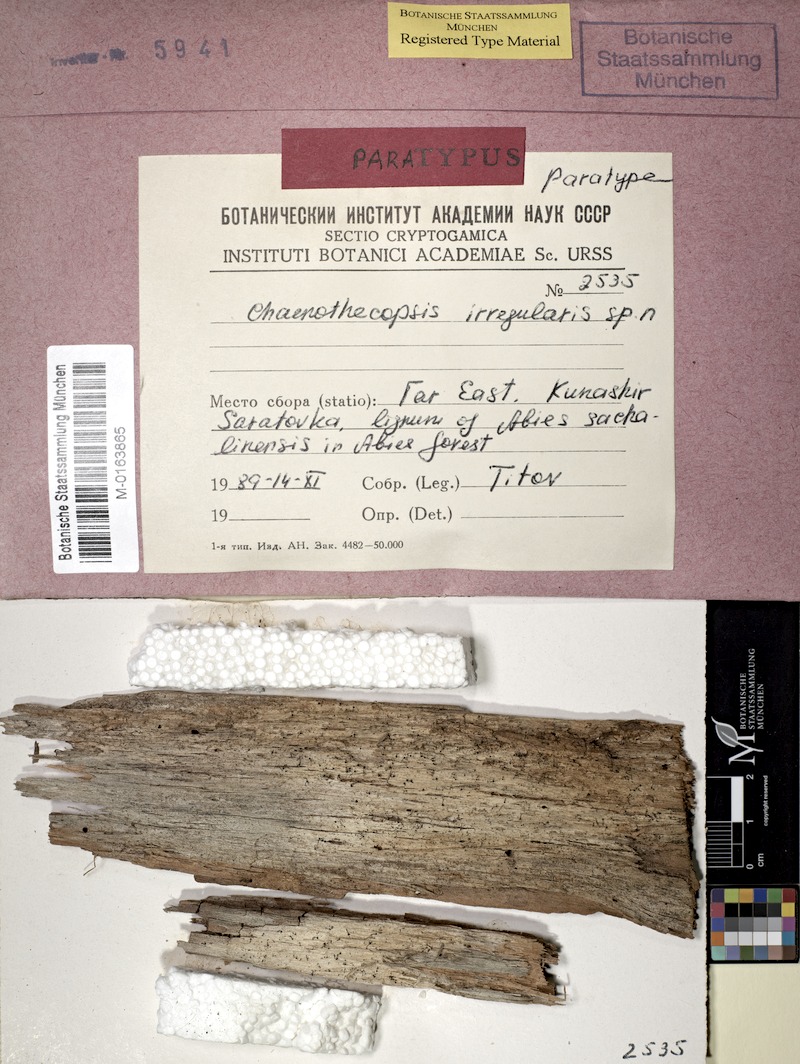 BOTANISCHE STAATSSAMMLUNG
MÜNCHEN
Registered Type Material
Inventar-Nr. 5941
Botanische
Staatssammlung
München
PARATYPUS
Paratype
БОТАНИЧЕСКИЙ ИНСТИТУТ АКАДЕМИИ НАУК СССР
SECTIO CRYPTOGAMICA
INSTITUTI BOTANICI ACADEMIAE Sc. URSS
№ 2535
Chaenothecopsis irregularis sp.n
Место сбора (statio): Far East. Kunashir
Saratovka, lignum of Abies sacha-
linensis in Abies forest
1989-14-XI Собр. (Leg.) Titov
19 Опр. (Det.)
1-я тип. Изд. АН. Зак. 4482—50.000
Botanische Staatssammlung München
M-0163865
BOTANISCHE
STAATSSAMMLUNG
MÜNCHEN
copyright reserved
0 1 2
cm
2535